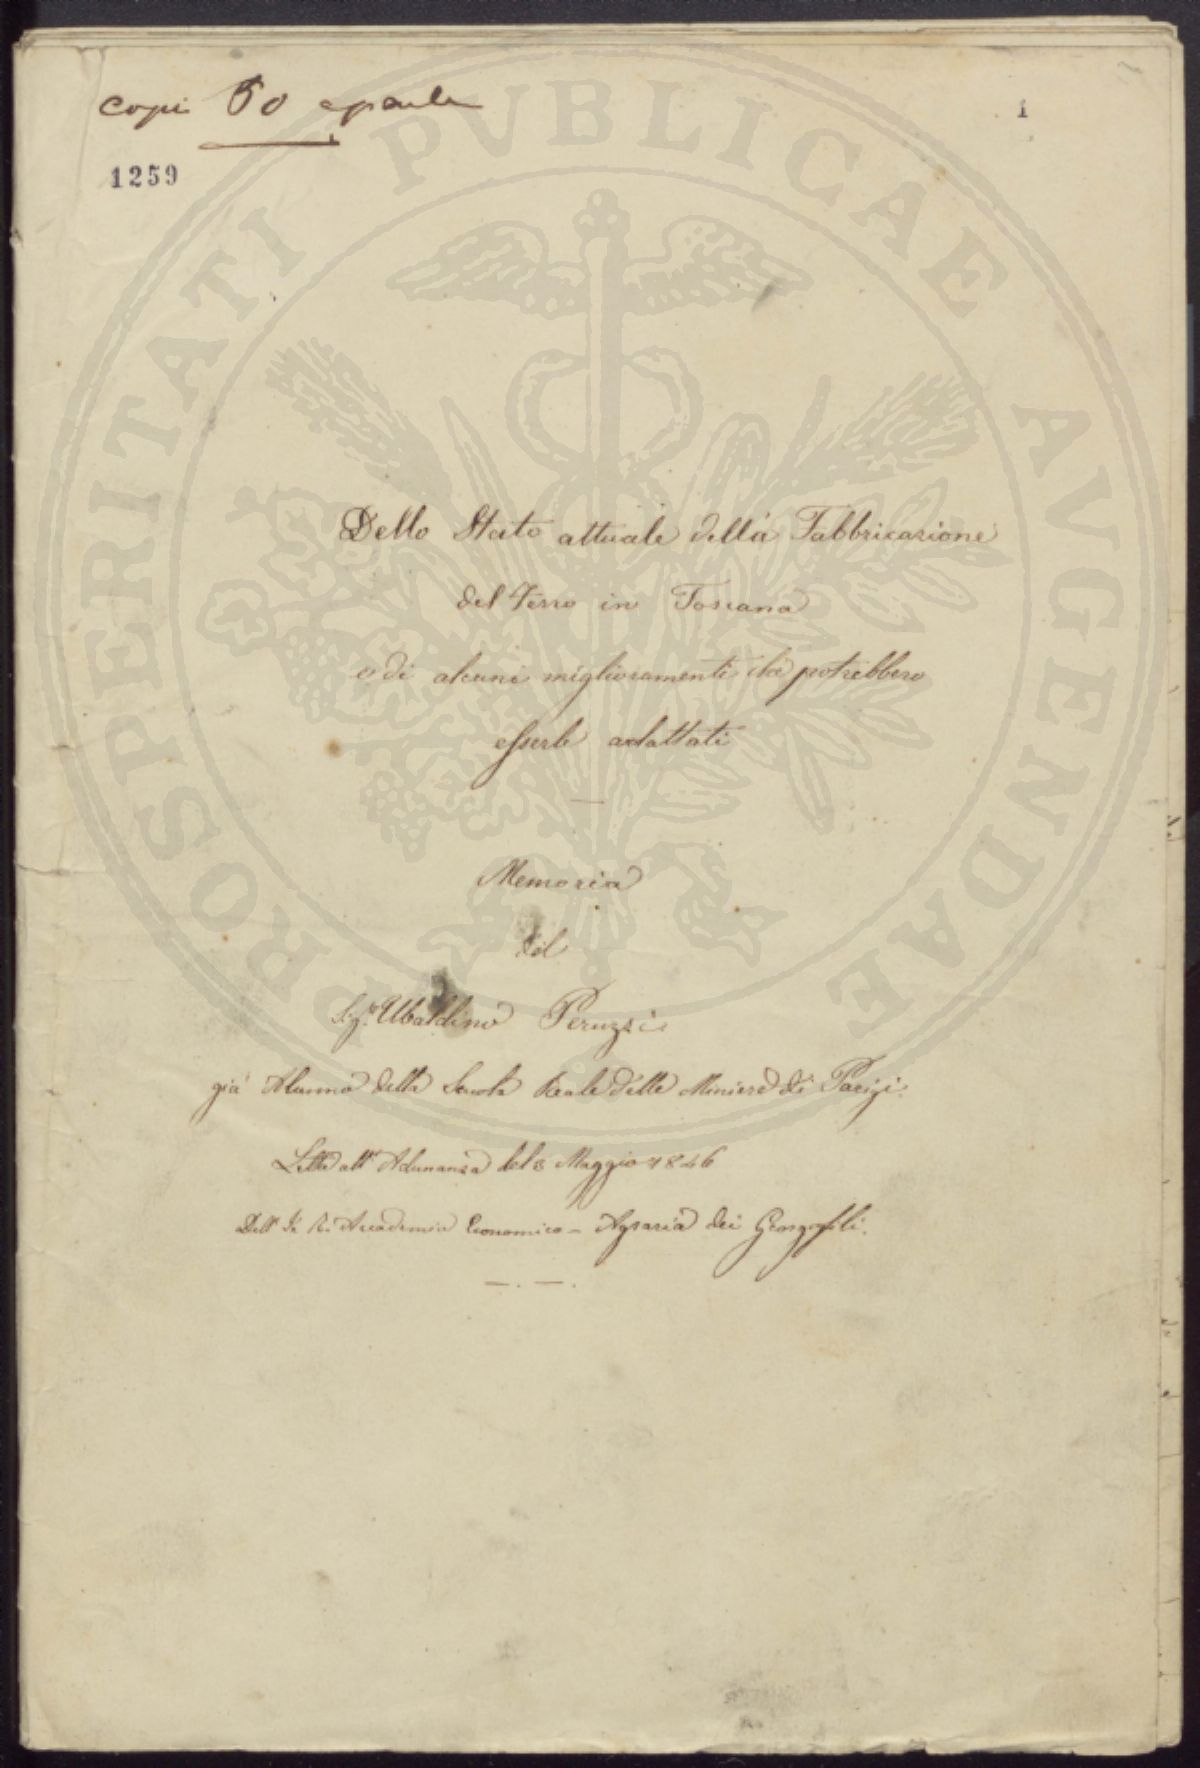 copie 50 a parte
1
1259
PROSPERITATI PVBLICAE AVGENDAE
Dello Stato attuale della Fabbricazione
del Ferro in Toscana
e di alcuni miglioramenti che potrebbero
esserle adattati
Memoria
del
Sig.r Ubaldino Peruzzi
già Alunno della Scuola Reale delle Miniere di Parigi.
Letta all' Adunanza del 3 Maggio 1846
Dell' I. e R. Accademia Economico - Agraria dei Georgofili.